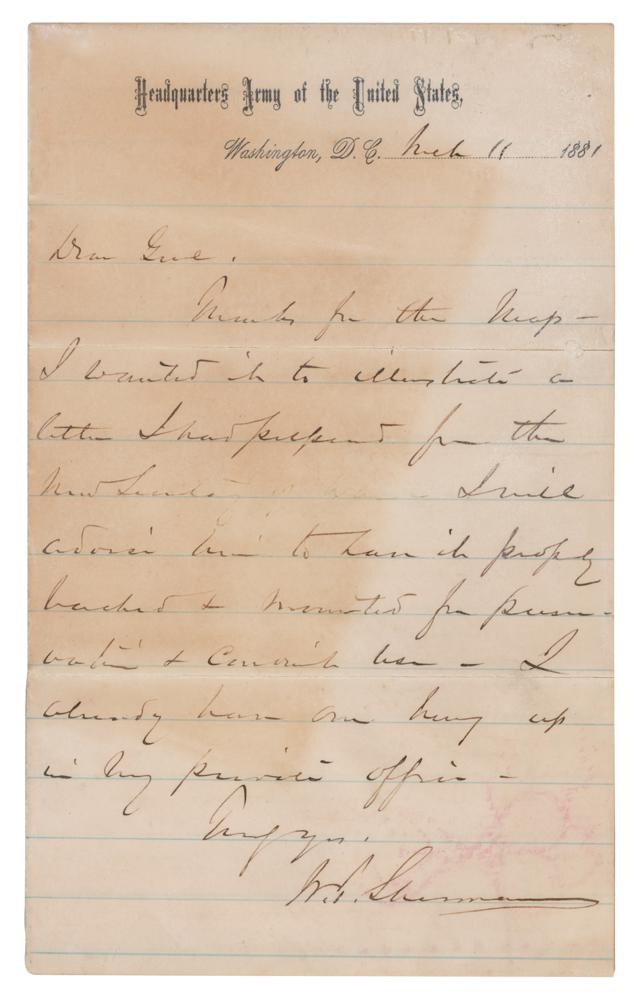 Headquarters Army of the United States,
Washington, D.C. Mch 11 1881
Dear Genl.
Thanks for the Map –
I wanted it to illustrate a
letter I had prepared for the
new Secretary I will
advise him to have it properly
backed & mounted for preser-
vation & convenient use – I
already have one hung up
in my private office –
Truly yrs.
W.T. Sherman